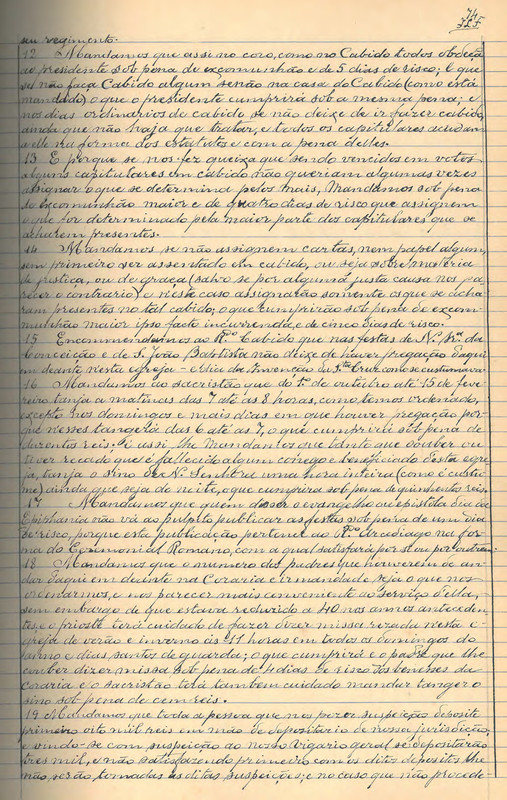 74
seu regimento.
12 Mandamos que assi no coro, como no Cabido todos obedeção
ao presidente sob pena de excomunhão e de 5 dias de risco; e que
se não faça Cabido algum senão na casa do Cabido (como está
mandado) o que o presidente cumprirá sob a mesma pena; e
nos dias ordinarios de cabido se não deixe de ir fazer cabido,
ainda que não haja que tratar, e todos os capitulares acudam
a elle na forma dos estatutos e com a pena delles.
13 E porque se nos fez queixa que sendo vencidos em votos
alguns capitulares em cabido não queriam algumas vezes
assignar o que se determina pelos mais, Mandamos sob pena
de excomunhão maior e de quatro dias de risco que assignem
o que for determinado pela maior parte dos capitulares que se
acharem presentes.
14 Mandamos se não assignem cartas, nem papel algum,
sem primeiro ser assentado em cabido, ou seja sobre materia
de justiça, ou de graça (salvo se por alguma justa causa nos pa-
recer o contrario) e neste caso assignarão somente os que se acha-
ram presentes no tal cabido; o que cumprirão sob pena de excom-
munhão maior ipso facto incurrenda, e de cinco dias de risco.
15 Encommendamos ao Rdo Cabido que nas festas de N. Sra da
Conceição e de S. João Baptista não deixe de haver pregação daqui
em deante nesta egreja - e dia da Invenção da Sta Cruz como se custumava
16 Mandamos ao sacristão que do 1º de outubro até 15 de feve-
reiro tanja a matinas das 7 até as 8 horas, como temos ordenado,
excepto nos domingos e mais dias em que houver pregação por-
que nesses tangerá das 6 até as 7, o que cumprirá sob pena de
duzentos reis. E assi lhe Mandamos que tanto que souber ou
tiver recado que é fallecido algum conego e beneficiado desta egre-
ja, tanja o sino de N. Senhora uma hora inteira (como é custu-
me) ainda que seja de noite, o que cumprirá sob pena de quinhentos reis.
17 Mandamos que quem disser o evangelho ou epistola dia da
Epiphania não vá ao pulpito publicar as festas sob pena de um dia
de risco, porque esta publicação pertence ao Rdo Arcediago na for-
ma do Ceremonial Romano, com a qual satisfará por si ou por outrem.
18 Mandamos que o numero dos padres que houverem de an-
dar daqui em deante na Coraria e irmandade seja o que nos
ordenarmos, e nos parecer mais conveniente ao serviço della,
sem embargo de que estava reduzido a 40 nos annos anteceden-
tes, e o prioste terá cuidado de fazer dizer missa rezada nesta e-
greja de verão e inverno ás 11 horas em todos os domingos do
anno e dias santos de guarda; o que cumprirá e o padre que lhe
couber dizer missa sob pena de 4 dias de risco dos benesses da
coraria e o sacristão terá tambem cuidado mandar tanger o
sino sob pena de cem reis.
19 Mandamos que toda a pessoa que nos pozer suspeição deposite
primeiro oito mil reis em mão de depositario de nossa jurisdicção,
e vindo-se com suspeição ao nosso Vigario geral se depositarão
tres mil, e não satisfazendo primeiro com os ditos depositos lhe
não serão tomadas as ditas suspeições; e no caso que não procede